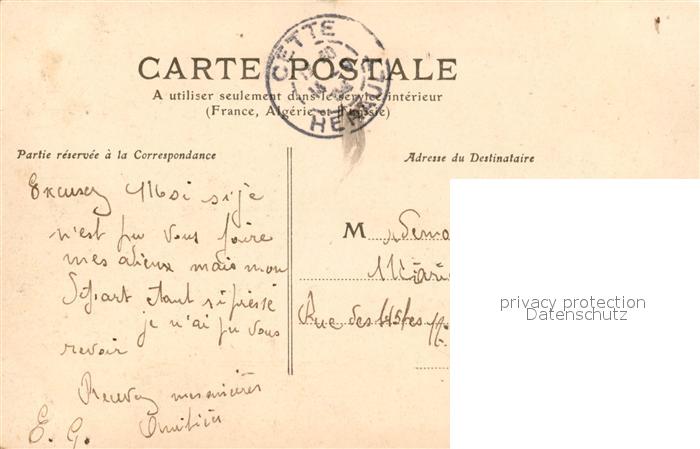 CARTE POSTALE
A utiliser seulement dans le service intérieur
(France, Algérie et Tunisie)
CETTE
HERAULT
Partie réservée à la Correspondance
Adresse du Destinataire
Excusez Moi si je
n'est pu vous faire
mes adieux mais mon
Départ etant si pressé
je n'ai pu vous
revoir
Recevez mes
Amitiés
E. G.
M
Rue des
privacy protection
Datenschutz